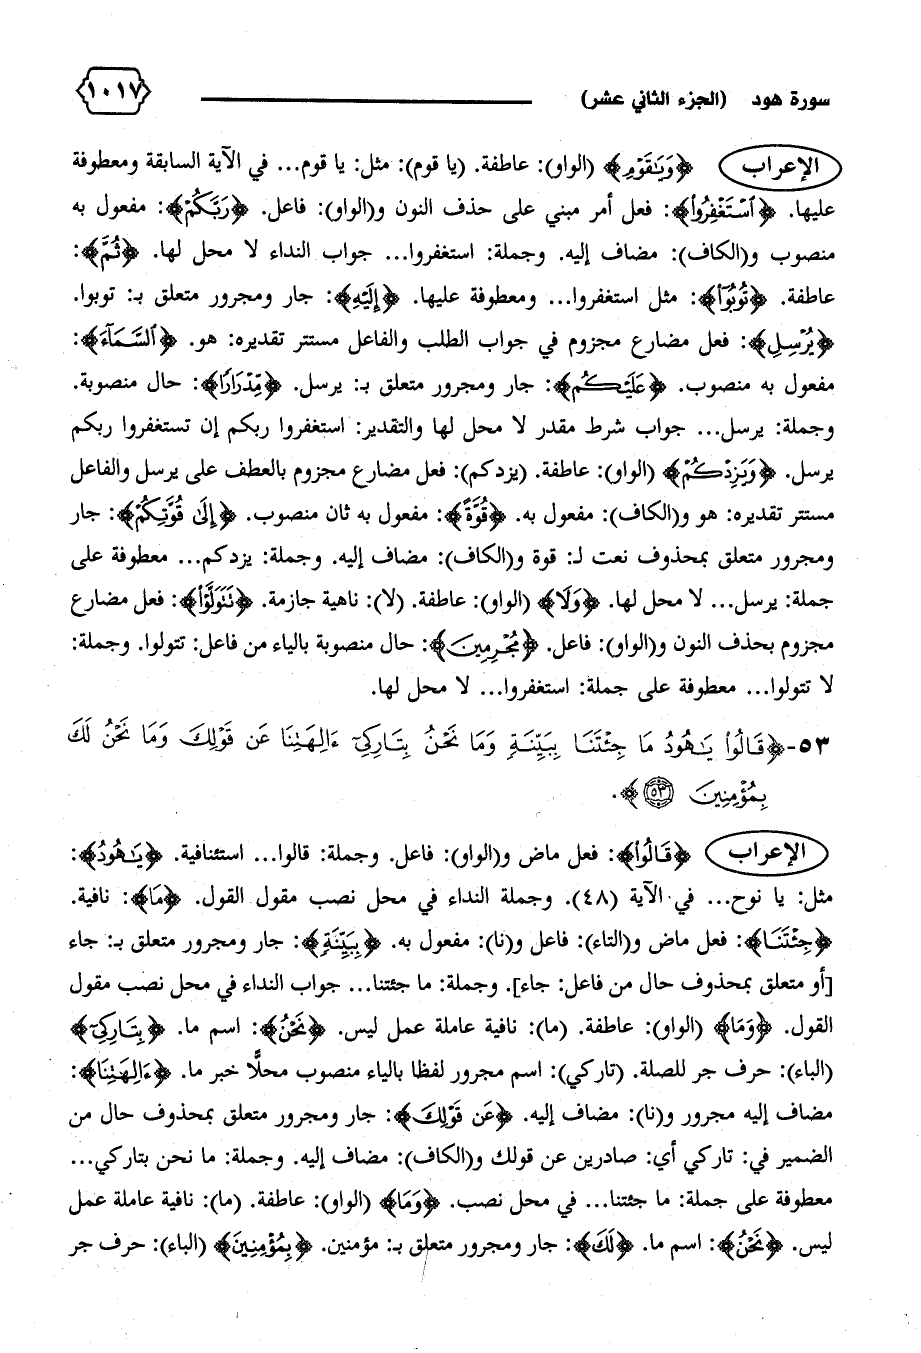 سورة هود (الجزء الثاني عشر) ١٠١٧
الإعراب ﴿وَيَٰقَوْمِ﴾ (الواو): عاطفة. (يا قوم): مثل: يا قوم... في الآية السابقة ومعطوفة
عليها. ﴿ٱسْتَغْفِرُوا۟﴾: فعل أمر مبني على حذف النون و(الواو): فاعل. ﴿رَبَّكُمْ﴾: مفعول به
منصوب و(الكاف): مضاف إليه. وجملة: استغفروا... جواب النداء لا محل لها. ﴿ثُمَّ﴾:
عاطفة. ﴿تُوبُوٓا۟﴾: مثل استغفروا... ومعطوفة عليها. ﴿إِلَيْهِ﴾: جار ومجرور متعلق بـ: توبوا.
﴿يُرْسِلِ﴾: فعل مضارع مجزوم في جواب الطلب والفاعل مستتر تقديره: هو. ﴿ٱلسَّمَآءَ﴾:
مفعول به منصوب. ﴿عَلَيْكُم﴾: جار ومجرور متعلق بـ: يرسل. ﴿مِّدْرَارًا﴾: حال منصوبة.
وجملة: يرسل... جواب شرط مقدر لا محل لها والتقدير: استغفروا ربكم إن تستغفروا ربكم
يرسل. ﴿وَيَزِدْكُمْ﴾ (الواو): عاطفة. (يزدكم): فعل مضارع مجزوم بالعطف على يرسل والفاعل
مستتر تقديره: هو و(الكاف): مفعول به. ﴿قُوَّةً﴾: مفعول به ثان منصوب. ﴿إِلَىٰ قُوَّتِكُمْ﴾: جار
ومجرور متعلق بمحذوف نعت لـ: قوة و(الكاف): مضاف إليه. وجملة: يزدكم... معطوفة على
جملة: يرسل... لا محل لها. ﴿وَلَا﴾ (الواو): عاطفة. (لا): ناهية جازمة. ﴿تَتَوَلَّوْا۟﴾: فعل مضارع
مجزوم بحذف النون و(الواو): فاعل. ﴿مُجْرِمِينَ﴾: حال منصوبة بالياء من فاعل: تتولوا. وجملة:
لا تتولوا... معطوفة على جملة: استغفروا... لا محل لها.
٥٣- ﴿قَالُوا۟ يَٰهُودُ مَا جِئْتَنَا بِبَيِّنَةٍ وَمَا نَحْنُ بِتَارِكِىٓ ءَالِهَتِنَا عَن قَوْلِكَ وَمَا نَحْنُ لَكَ
بِمُؤْمِنِينَ ٥٣﴾.
الإعراب ﴿قَالُوا۟﴾: فعل ماض و(الواو): فاعل. وجملة: قالوا... استئنافية. ﴿يَٰهُودُ﴾:
مثل: يا نوح... في الآية (٤٨). وجملة النداء في محل نصب مقول القول. ﴿مَا﴾: نافية.
﴿جِئْتَنَا﴾: فعل ماض و(التاء): فاعل و(نا): مفعول به. ﴿بِبَيِّنَةٍ﴾: جار ومجرور متعلق بـ: جاء
[أو متعلق بمحذوف حال من فاعل: جاء]. وجملة: ما جئتنا... جواب النداء في محل نصب مقول
القول. ﴿وَمَا﴾ (الواو): عاطفة. (ما): نافية عاملة عمل ليس. ﴿نَحْنُ﴾: اسم ما. ﴿بِتَارِكِىٓ﴾
(الباء): حرف جر للصلة. (تاركي): اسم مجرور لفظا بالياء منصوب محلًّا خبر ما. ﴿ءَالِهَتِنَا﴾:
مضاف إليه مجرور و(نا): مضاف إليه. ﴿عَن قَوْلِكَ﴾: جار ومجرور متعلق بمحذوف حال من
الضمير في: تاركي أي: صادرين عن قولك و(الكاف): مضاف إليه. وجملة: ما نحن بتاركي...
معطوفة على جملة: ما جئتنا... في محل نصب. ﴿وَمَا﴾ (الواو): عاطفة. (ما): نافية عاملة عمل
ليس. ﴿نَحْنُ﴾: اسم ما. ﴿لَكَ﴾: جار ومجرور متعلق بـ: مؤمنين. ﴿بِمُؤْمِنِينَ﴾ (الباء): حرف جر